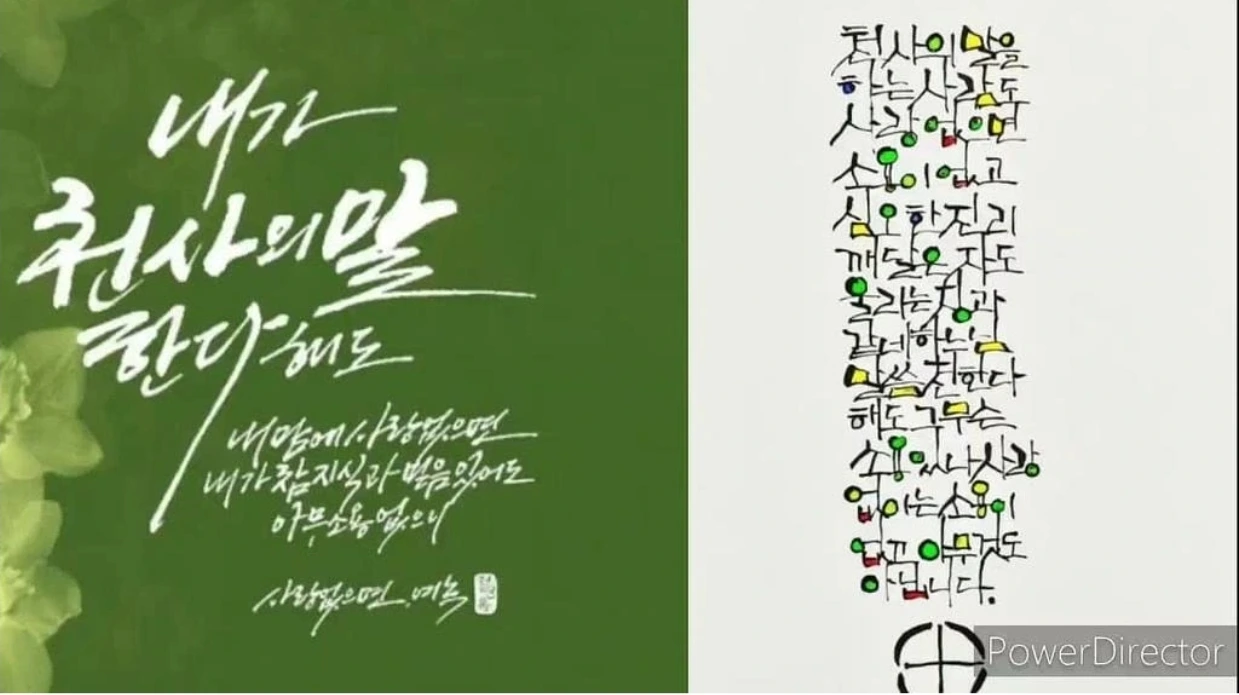 내가
천사의말
한다해도
내 맘에 사랑없으면
내가 참지식과 믿음있어도
아무소용없으니
사랑없으면. 예녹
천사의 말을
하는 사람도
사랑 없으면
소용이 없고
심오한 진리
깨달은 자도
울리는 징과
같네 하느님
말씀 전한다
해도 그 무슨
소용 있나 사랑
없이는 소용이
없고 아무것도
아닙니다.
PowerDirector